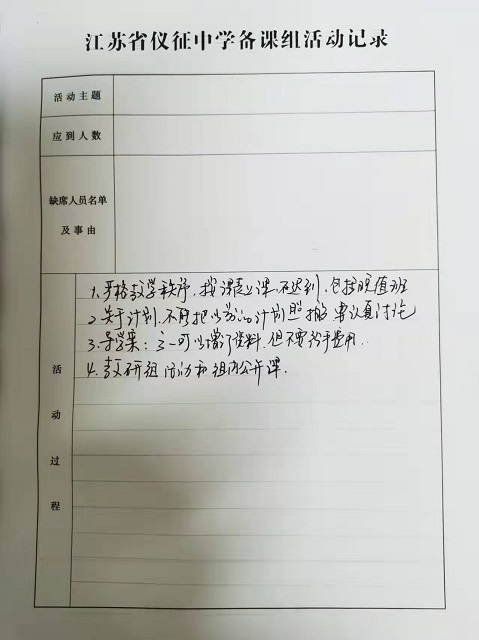 江苏省仪征中学备课组活动记录
活动主题
应到人数
缺席人员名单
及事由
活动过程
1.严格教学秩序,按课表上课,不迟到,包括晚值班
2.关于计划,不能把以前的计划照搬 要认真讨论
3.导学案:高一可以增订资料,但不要多费用.
4.教研组活动和组内公开课.